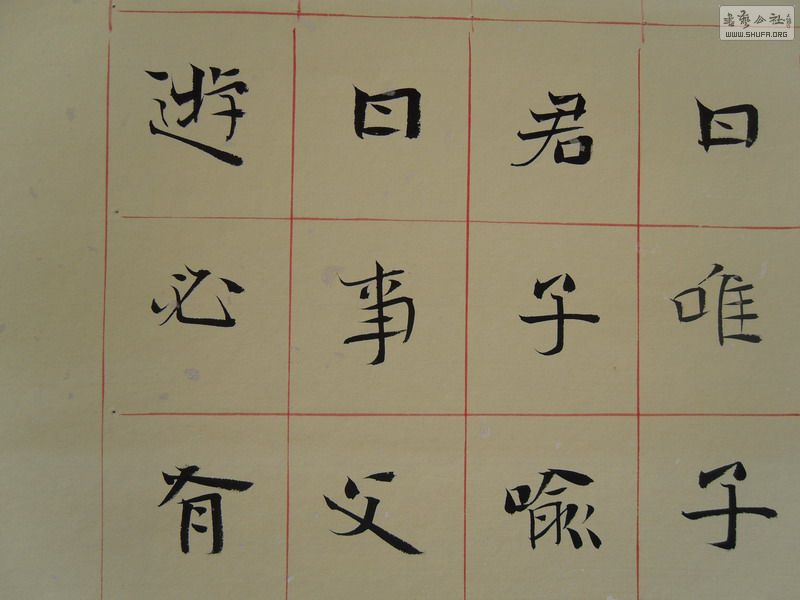 曰唯子
君子喻
曰事父
遊必有
書藝公社
WWW.SHUFA.ORG